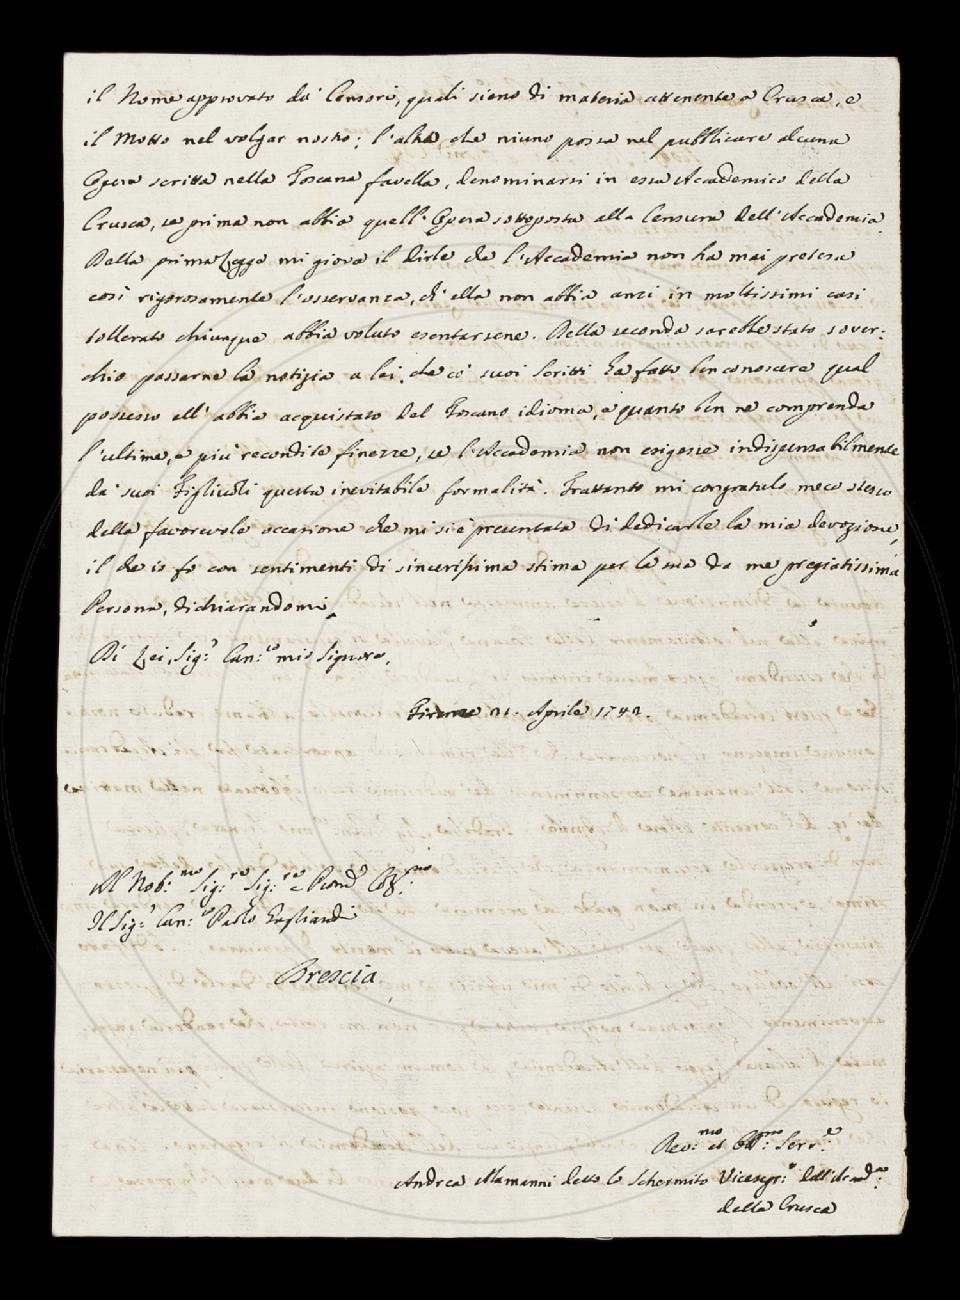 il Nome approvato da' Censori, quali sieno di materia attenente a Crusca, e
il Motto nel volgar nostro; l'altra che niuno possa nel pubblicare alcuna
Opera scritta nella Toscana favella, denominarsi in essa Accademico della
Crusca, se prima non abbia quell'Opera sottoposta alla Censura dell'Accademia.
Della prima Legge mi giova il dirle che l'Accademia non ha mai pretesa
così rigorosamente l'osservanza, ch'ella non abbia anzi in moltissimi casi
tollerato chiunque abbia voluto esentarsene. Della seconda sarebbe stato sover:
chio passarne la notizia a lei, che co' suoi Scritti ha fatto ben conoscere qual
possesso ell'abbia acquistato del Toscano idioma, e quanto ben ne comprenda
l'ultime, e più recondite finezze, se l'Accademia non esigesse indispensabilmente
da' suoi Figliuoli questa inevitabile formalità. Frattanto mi congratulo meco stesso
della favorevole occasione che mi si è presentata di dedicarle la mia devozione,
il che io fo con sentimenti di sincerissima stima per la sua da me pregiatissima
Persona, dichiarandomi
Di Lei, Sig.r Can:co mio Signore,
Firenze 21. Aprile 1742.
Al Nob:mo Sig:re Sig:re e Pron
Il Sig.r Can:co Paolo Gagliardi
Brescia
Rev:mo et Obb:mo Serv:e
Andrea Alamanni detto lo Schermito Vicesegr:o dell'Accad:a
della Crusca